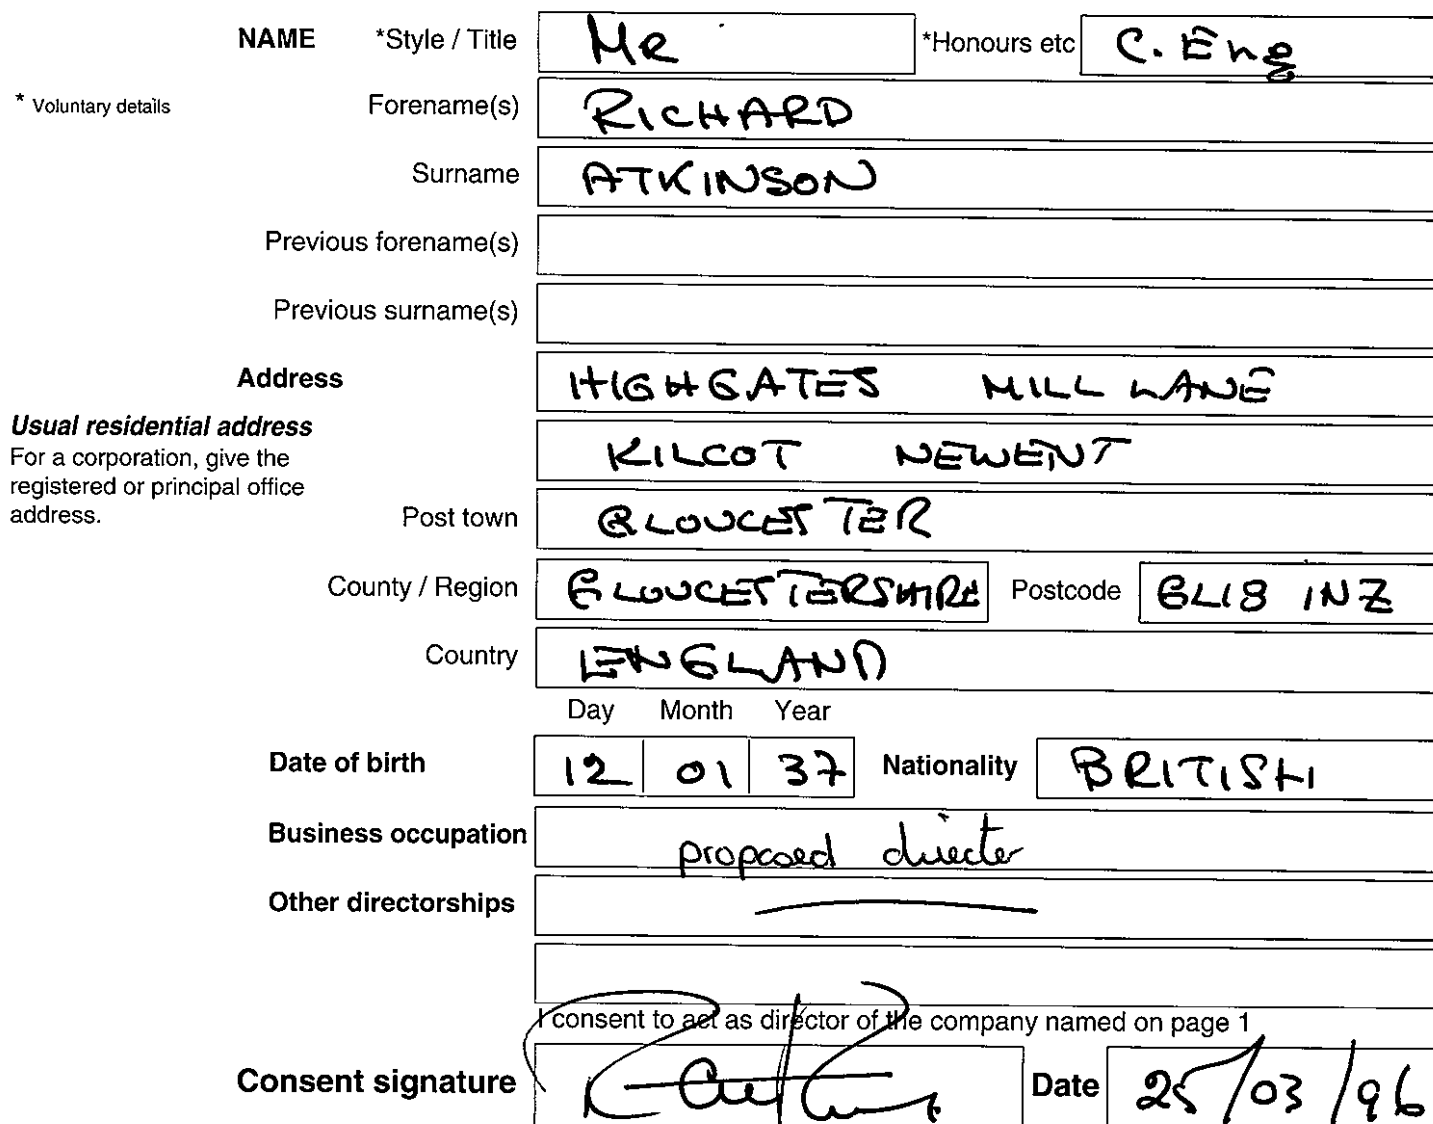 NAME *Style / Title MR *Honours etc C. Eng
* Voluntary details Forename(s) RICHARD
Surname ATKINSON
Previous forename(s)
Previous surname(s)
Address HIGHGATES MILL LANE
Usual residential address
For a corporation, give the
registered or principal office
address.
KILCOT NEWENT
Post town GLOUCESTER
County / Region GLOUCESTERSHIRE Postcode GL18 1NZ
Country ENGLAND
Day Month Year
Date of birth 12 01 37 Nationality BRITISH
Business occupation proposed director
Other directorships
I consent to act as director of the company named on page 1
Consent signature Date 25/03/96